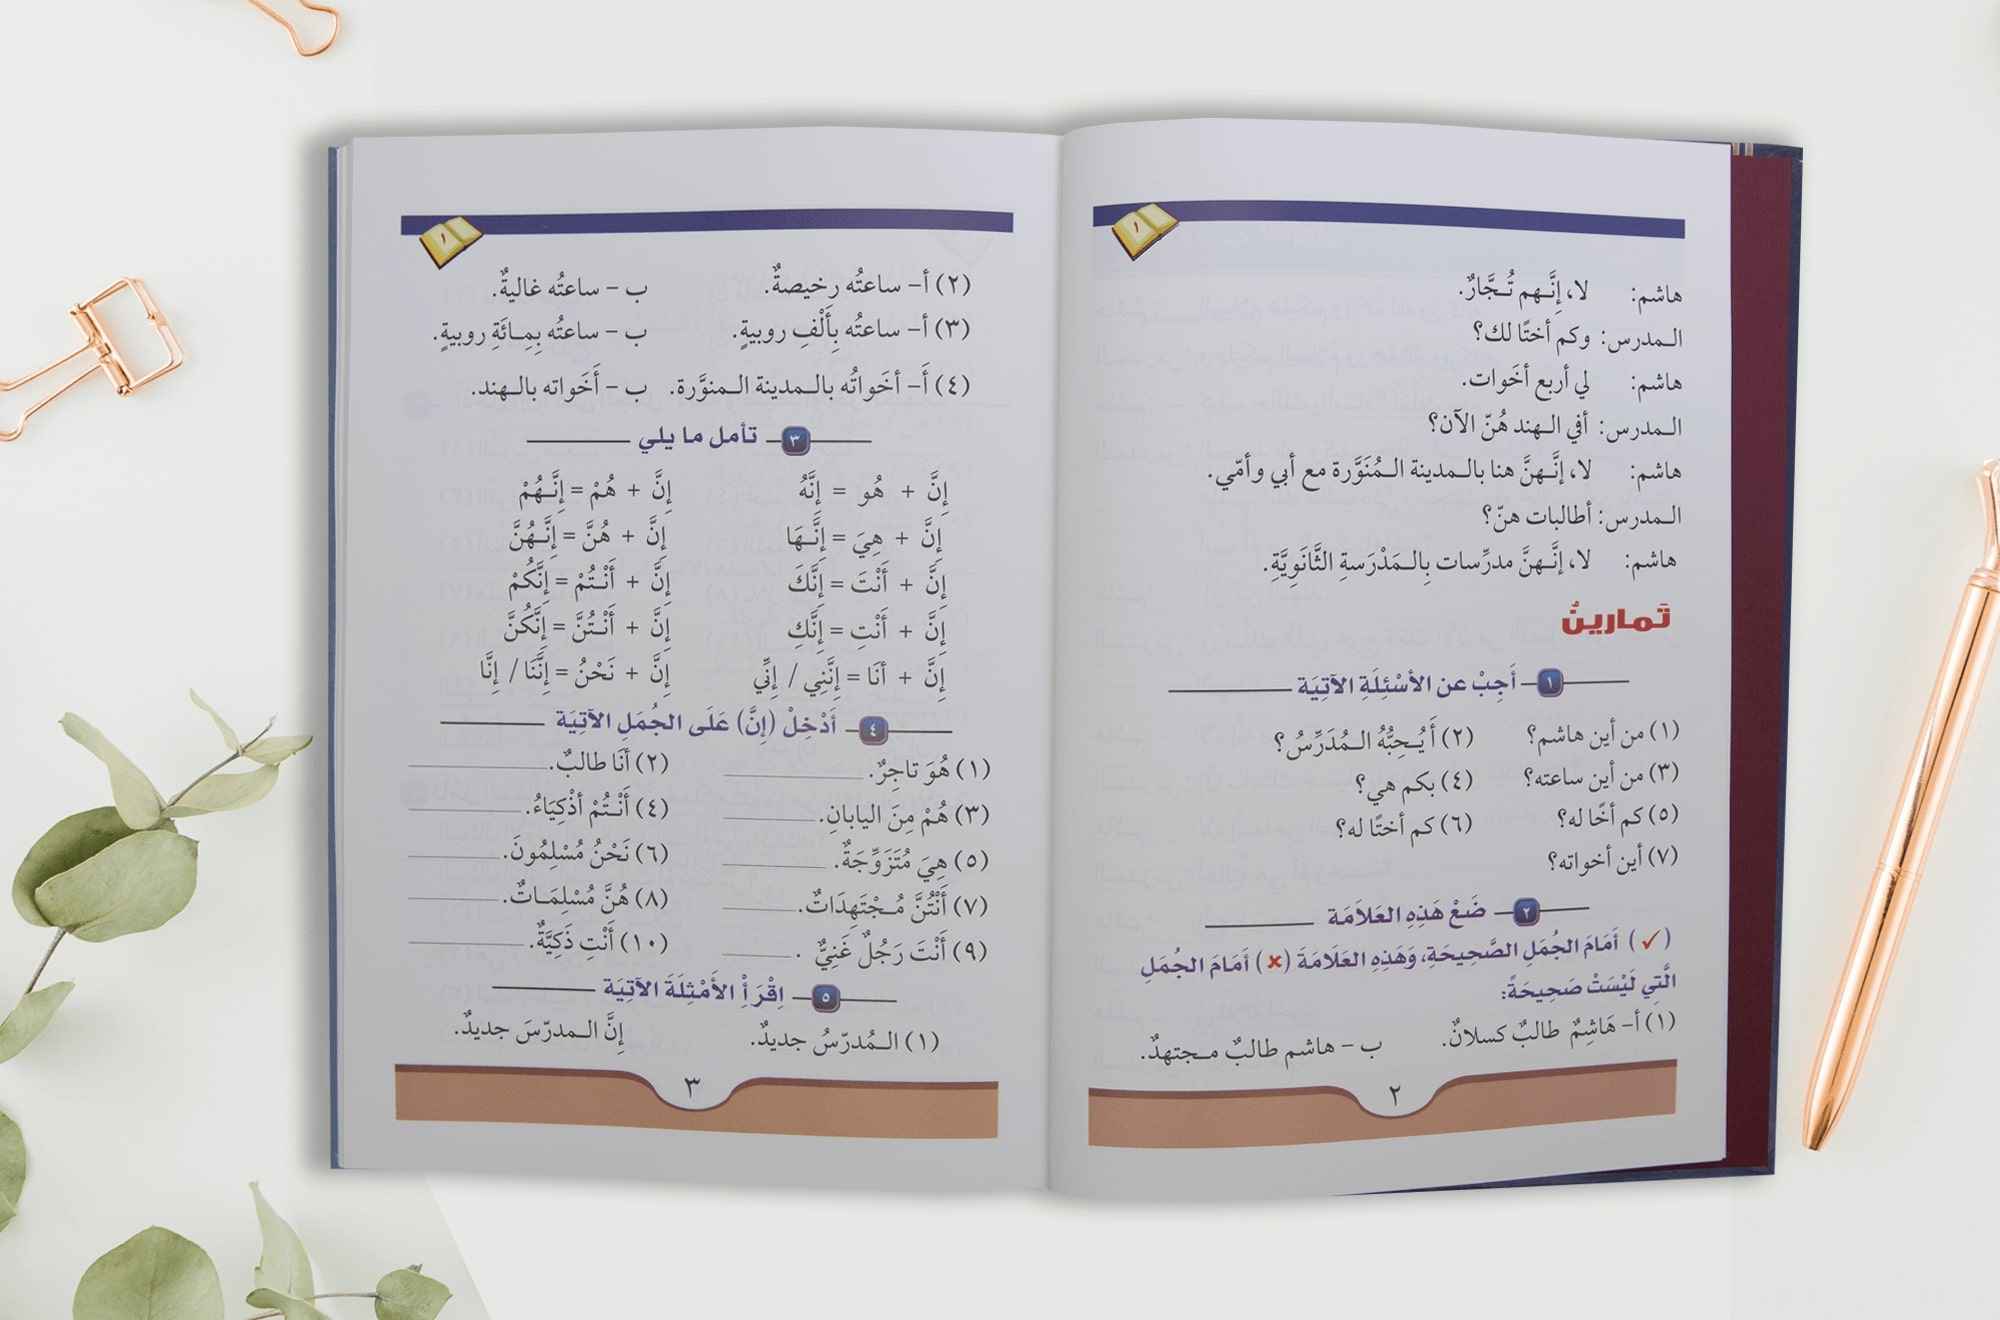 ١
هاشم: لا، إِنَّهم تُجَّارٌ.
المدرس: وكم أختًا لك؟
هاشم: لي أربع أخَوات.
المدرس: أفي الهند هُنّ الآن؟
هاشم: لا، إنَّهنَّ هنا بالمدينة المُنَوَّرة مع أبي وأمّي.
المدرس: أطالبات هنّ؟
هاشم: لا، إنَّهنَّ مدرِّسات بِالمَدْرَسةِ الثَّانَوِيَّةِ.
تَمارينُ
١ أَجِبْ عن الأسْئِلَةِ الآتِيَة
(١) من أين هاشم؟ (٢) أَيُحِبُّهُ المُدَرِّسُ؟
(٣) من أين ساعته؟ (٤) بكم هي؟
(٥) كم أخًا له؟ (٦) كم أختًا له؟
(٧) أين أخواته؟
٢ ضَعْ هَذِهِ العَلاَمَة
(✓) أَمَامَ الجُمَلِ الصَّحِيحَةِ، وَهَذِهِ العَلَامَةَ (✗) أَمَامَ الجُمَلِ
الَّتِي لَيْسَتْ صَحِيحَةً:
(١) أ– هَاشِمٌ طالبٌ كسلانٌ. ب – هاشم طالبٌ مجتهدٌ.
٢
١
(٢) أ– ساعتُه رخيصةٌ. ب – ساعتُه غاليةٌ.
(٣) أ– ساعتُه بِأَلْفِ روبيةٍ. ب – ساعتُه بِمِائَةِ روبيةٍ.
(٤) أَ– أخَواتُه بالمدينة المنوَّرة. ب – أَخَواته بالهند.
٣ تأمل ما يلي
إِنَّ + هُو = إِنَّهُ إِنَّ + هُمْ = إِنَّهُمْ
إِنَّ + هِيَ = إِنَّهَا إِنَّ + هُنَّ = إِنَّهُنَّ
إِنَّ + أَنْتَ = إِنَّكَ إِنَّ + أَنْتُمْ = إِنَّكُمْ
إِنَّ + أَنْتِ = إِنَّكِ إِنَّ + أَنْتُنَّ = إِنَّكُنَّ
إِنَّ + أنَا = إِنَّنِي / إِنِّي إِنَّ + نَحْنُ = إِنَّنَا / إِنَّا
٤ أَدْخِلْ (إِنَّ) عَلَى الجُمَلِ الآتِيَة
(١) هُوَ تاجِرٌ. (٢) أنَا طالبٌ.
(٣) هُمْ مِنَ اليابانِ. (٤) أَنْتُمْ أذْكِيَاءُ.
(٥) هِيَ مُتَزَوِّجَةٌ. (٦) نَحْنُ مُسْلِمُونَ.
(٧) أَنْتُنَّ مُجْتَهِدَاتٌ. (٨) هُنَّ مُسْلِمَاتٌ.
(٩) أَنْتَ رَجُلٌ غَنِيٌّ . (١٠) أَنْتِ ذَكِيَّةٌ.
٥ اِقْرَأْ الأَمْثِلَةَ الآتِيَة
(١) المُدرّسُ جديدٌ. إِنَّ المدرّسَ جديدٌ.
٣